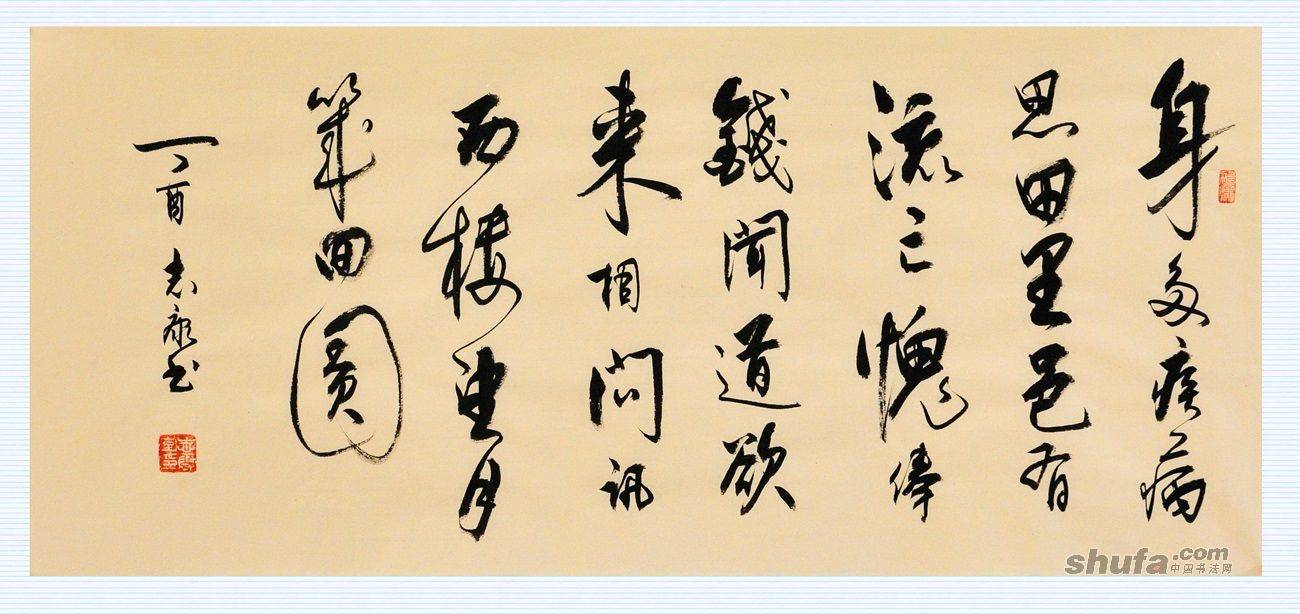 身多疾病
思田里邑有
流亡愧俸
錢聞道欲
来相問訊
西樓望月
幾回圓
丁酉 志康书
shufa.com
中国书法网